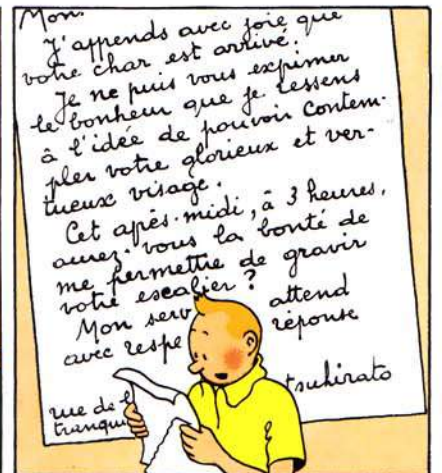 Mon.
J'apprends avec joie que
votre char est arrivé.
Je ne puis vous exprimer
le bonheur que je ressens
à l'idée de pouvoir contem-
pler votre glorieux et ver-
tueux visage.
Cet après-midi, à 3 heures,
aurez-vous la bonté de
me permettre de gravir
votre escalier ?
Mon serv attend
avec respe réponse
tsuhirato
rue de l
tranqu